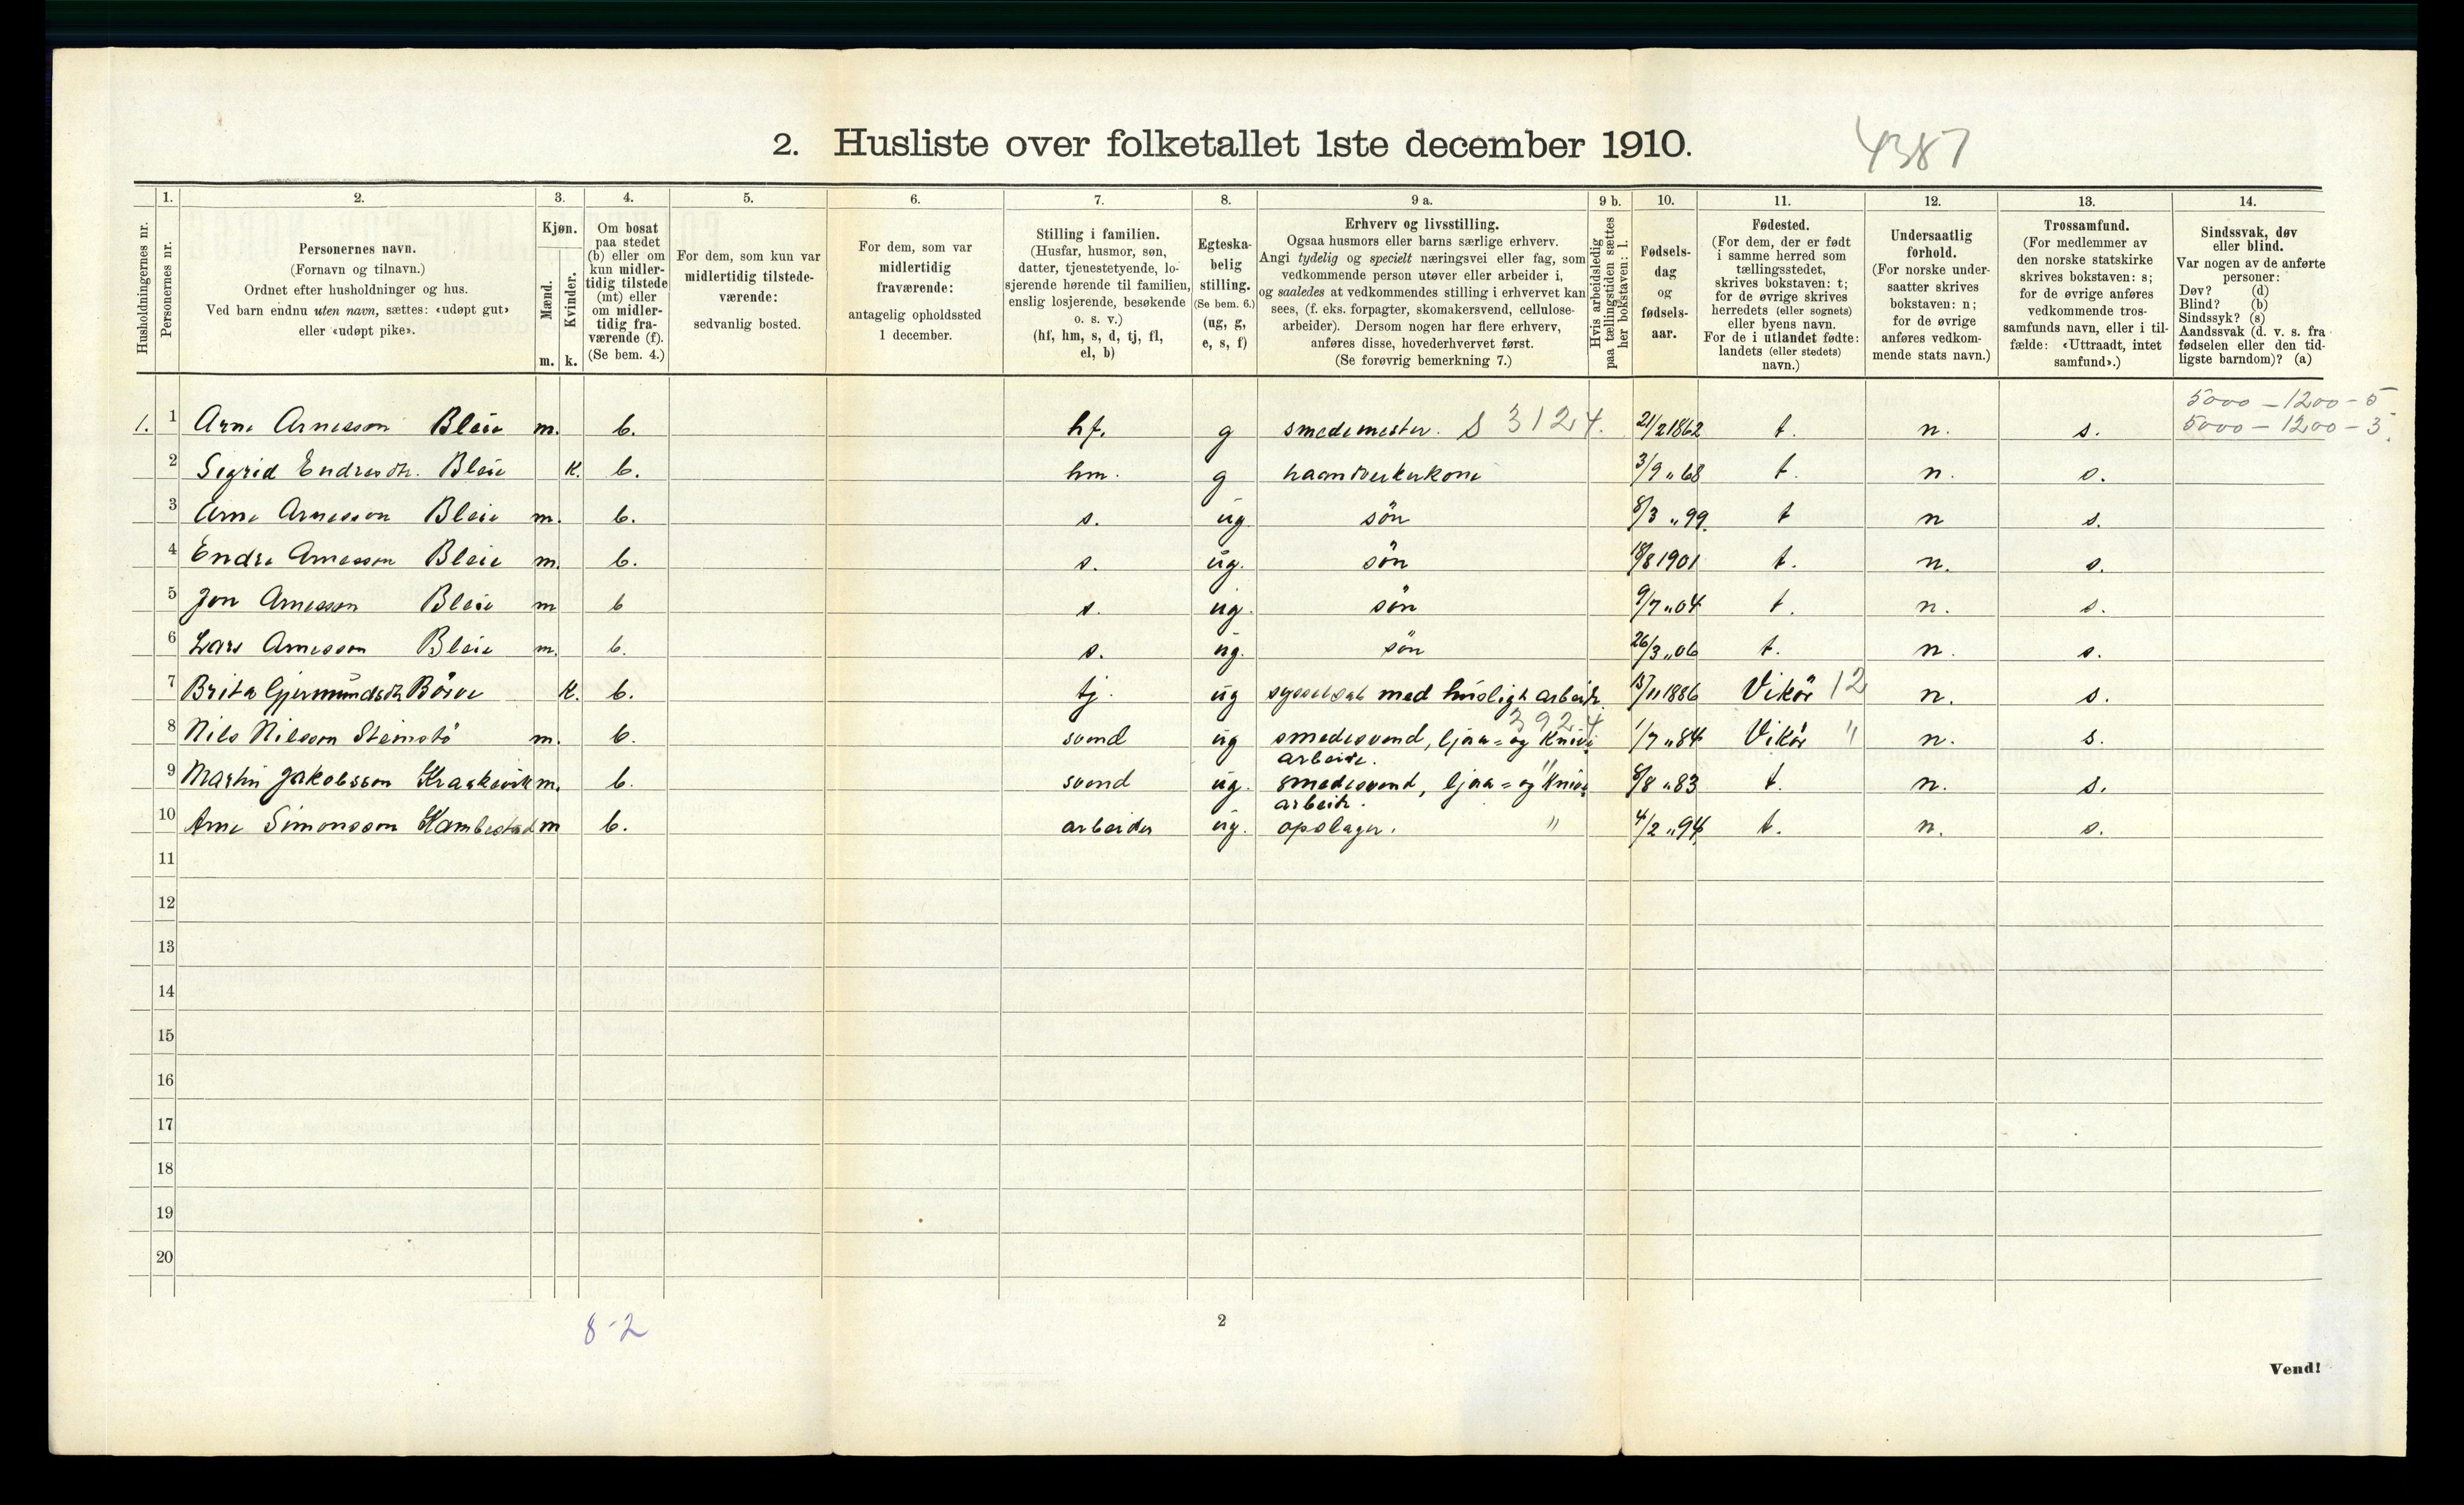 2. Husliste over folketallet 1ste december 1910.
4387
1. 2. 3. 4. 5. 6. 7. 8. 9 a. 9 b. 10. 11. 12. 13. 14.
Husholdningernes nr.
Personernes nr.
Personernes navn.
(Fornavn og tilnavn.)
Ordnet efter husholdninger og hus.
Ved barn endnu uten navn, sættes: «udøpt gut»
eller «udøpt pike».
Kjøn.
Mænd.
Kvinder.
m. k.
Om bosat
paa stedet
(b) eller om
kun midler-
tidig tilstede
(mt) eller
om midler-
tidig fra-
værende (f).
(Se bem. 4.)
For dem, som kun var
midlertidig tilstede-
værende:
sedvanlig bosted.
For dem, som var
midlertidig
fraværende:
antagelig opholdssted
1 december.
Stilling i familien.
(Husfar, husmor, søn,
datter, tjenestetyende, lo-
sjerende hørende til familien,
enslig losjerende, besøkende
o. s. v.)
(hf, hm, s, d, tj, fl,
el, b)
Egteska-
belig
stilling.
(Se bem. 6.)
(ug, g,
e, s, f)
Erhverv og livsstilling.
Ogsaa husmors eller barns særlige erhverv.
Angi tydelig og specielt næringsvei eller fag, som
vedkommende person utøver eller arbeider i,
og saaledes at vedkommendes stilling i erhvervet kan
sees, (f. eks. forpagter, skomakersvend, cellulose-
arbeider). Dersom nogen har flere erhverv,
anføres disse, hovederhvervet først.
(Se forøvrig bemerkning 7.)
Hvis arbeidsledig
paa tællingstiden sættes
her bokstaven: l.
Fødsels-
dag
og
fødsels-
aar.
Fødested.
(For dem, der er født
i samme herred som
tællingsstedet,
skrives bokstaven: t;
for de øvrige skrives
herredets (eller sognets)
eller byens navn.
For de i utlandet fødte:
landets (eller stedets)
navn.)
Undersaatlig
forhold.
(For norske under-
saatter skrives
bokstaven: n;
for de øvrige
anføres vedkom-
mende stats navn.)
Trossamfund.
(For medlemmer av
den norske statskirke
skrives bokstaven: s;
for de øvrige anføres
vedkommende tros-
samfunds navn, eller i til-
fælde: «Uttraadt, intet
samfund».)
Sindssvak, døv
eller blind.
Var nogen av de anførte
personer:
Døv? (d)
Blind? (b)
Sindssyk? (s)
Aandssvak (d. v. s. fra
fødselen eller den tid-
ligste barndom)? (a)
5000 - 1200 - 5
1. 1 Arne Arnesson Bleie m. b. hf. g smedemester. S 3124. 21/2 1862 t. n. s. 5000 - 1200 - 3.
2 Sigrid Endresdtr. Bleie k. b. hm. g haandverkerkone 3/9 " 68 t. n. s.
3 Arne Arnesson Bleie m. b. s. ug. søn 8/3 " 99. t n s.
4 Endre Arnesson Bleie m. b. s. ug. søn 18/8 1901 t. n. s.
5 Jon Arnesson Bleie m b s. ug. søn 9/7 " 04 t. n. s.
6 Lars Arnesson Bleie m. b. s. ug. søn 26/3 " 06 t. n. s.
7 Brita Gjermundsdtr Börve k. b. tj. ug sysselsat med husligt arbeide. 15/11 1886 Vikör 12 n. s.
3924
8 Nils Nilsson Steinstö m. b. svend ug smedesvend, ljaa= og kniv 1/7 " 84 Vikör " n. s.
arbeide.
9 Martin Jakobsson m. b. svend ug. smedesvend, ljaa= og kniv " 8/8 " 83 t. n. s.
arbeide.
10 Arne Simonsson Hambestad m b. arbeider ug. opslager. " 4/2 " 94. t. n. s.
11
12
13
14
15
16
17
18
19
20
8-2
2
Vend!